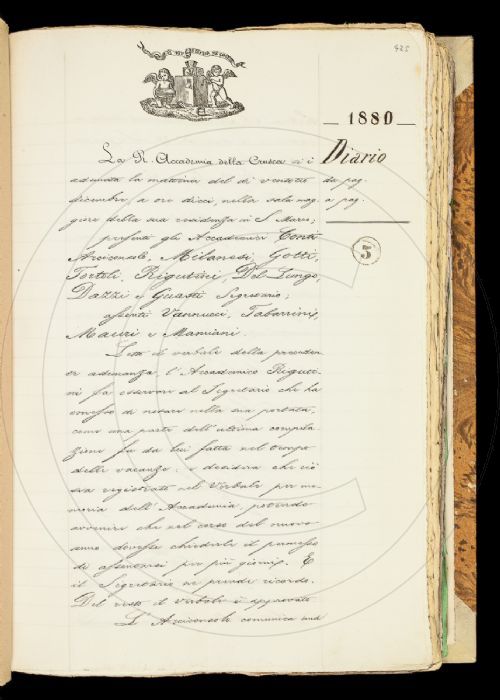 425
1880
Diario
da pag.
a pag.
5
La R. Accademia della Crusca si è
adunata la mattina del dì ventotto
dicembre a ore dieci, nella sala mag-
giore della sua residenza in S. Marco;
presenti gli Accademici Conti
Arciconsolo, Milanesi, Gotti,
Tortoli, Rigutini, Del-Lungo,
Dazzi e Guasti Segretario;
assenti Vannucci, Tabarrini,
Mauri e Mamiani.
Letto il verbale della preceden-
te adunanza, l'Accademico Riguti-
ni fa osservare al Segretario che ha
omesso di notare nella sua portata,
come una parte dell'ultima compila-
zione fu da lui fatta nel tempo
delle vacanze; e desidera che ciò
sia registrato nel Verbale per me-
moria dell'Accademia, potendo
avvenire che nel corso del nuovo
anno dovesse chiederle il permesso
di assentarsi per più giorni. E
il Segretario ne prende ricordo.
Del resto il verbale è approvato
L'Arciconsolo comunica